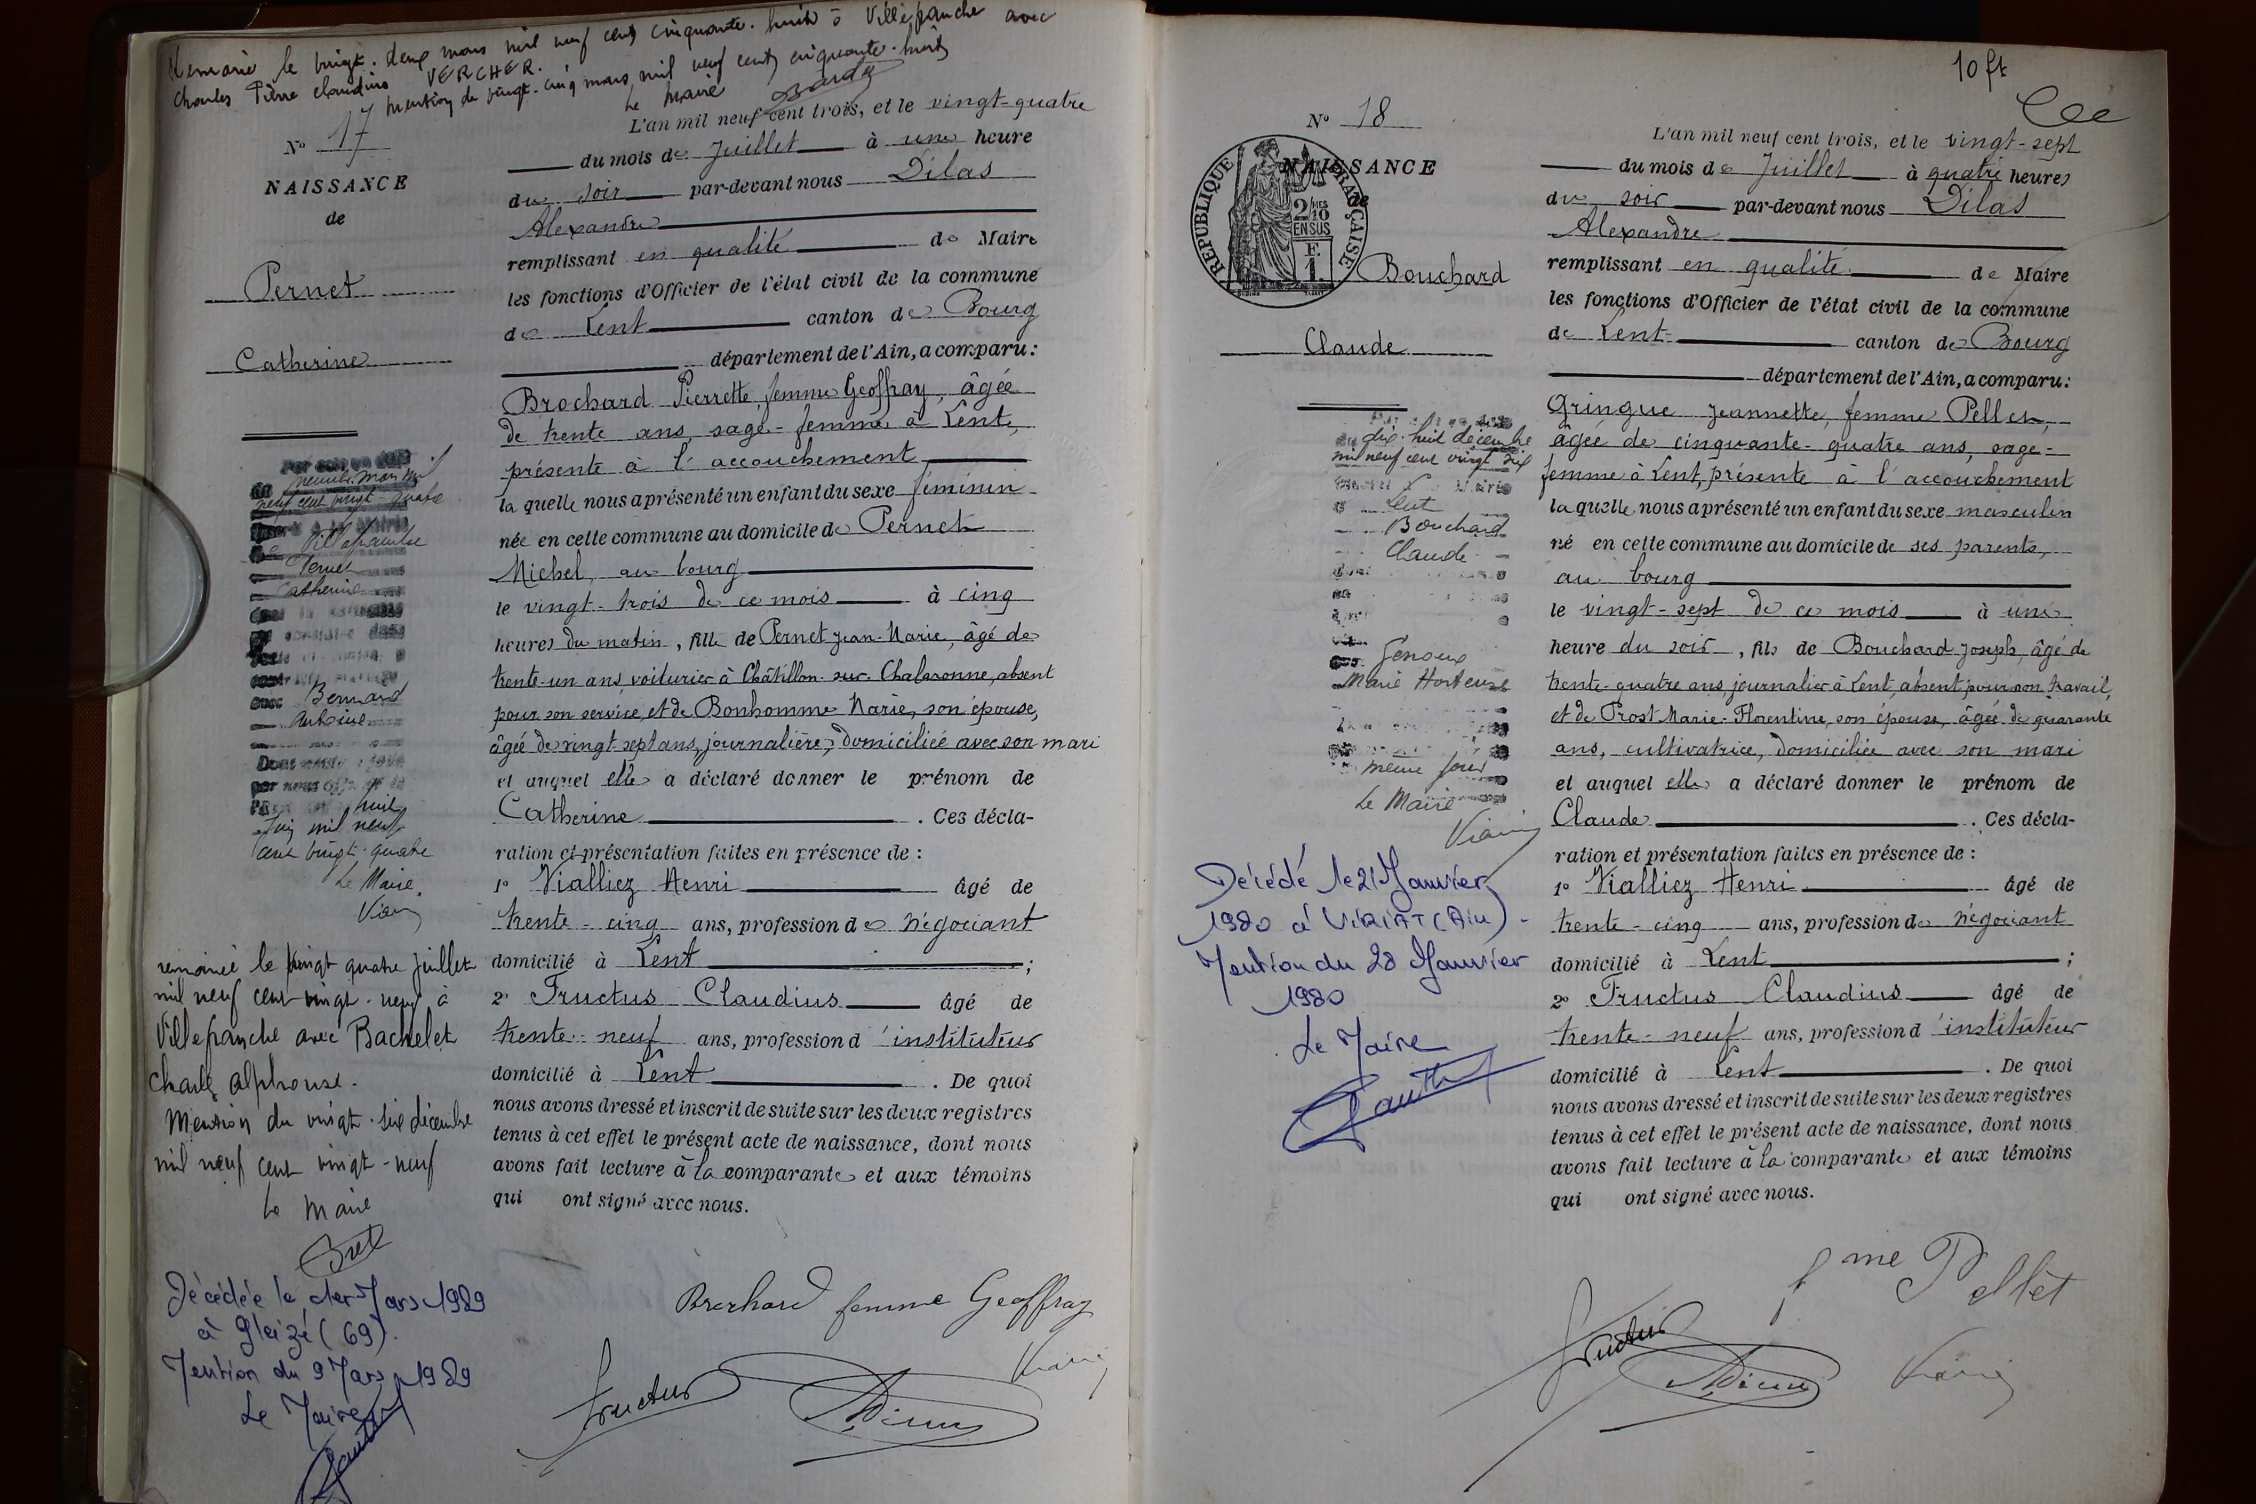 Remariée le vingt-deux mars mil neuf cent cinquante-huit à Villefranche avec
Charles Pierre Claudius VERCHER.
Mention du vingt-cinq mars mil neuf cent cinquante-huit
Le Maire
N° 17
NAISSANCE
de
Pernet
Catherine
Par acte en date
du
mil
neuf cent vingt-quatre
Villefranche
Pernet
Catherine
avec Bernard
Antoine
huit
Juin mil neuf
cent vingt-quatre
Le Maire
remariée le vingt quatre juillet
mil neuf cent vingt-neuf à
Villefranche avec Bachelet
Charles Alphonse.
Mention du vingt-six décembre
mil neuf cent vingt-neuf
Le Maire
Décédée le 1er Mars 1989
à Gleizé (69).
Mention du 9 Mars 1989
Le Maire
L'an mil neuf cent trois, et le vingt-quatre
du mois de Juillet à une heure
du soir par-devant nous Dilas
Alexandre
remplissant en qualité de Maire
les fonctions d'Officier de l'état civil de la commune
de Lent canton de Bourg
département de l'Ain, a comparu:
Brochard Pierrette, femme Geoffray, âgée
de trente ans, sage-femme à Lent,
présente à l'accouchement
laquelle nous a présenté un enfant du sexe féminin
née en cette commune au domicile de Pernet
Michel, au bourg
le vingt-trois de ce mois à cinq
heures du matin, fille de Pernet Jean-Marie, âgé de
trente-un ans, voiturier à Châtillon-sur-Chalaronne, absent
pour son service, et de Bonhomme Marie, son épouse,
âgée de vingt-sept ans, journalière, domiciliée avec son mari
et auquel elle a déclaré donner le prénom de
Catherine. Ces décla-
ration et présentation faites en présence de :
1° Vialliez Henri âgé de
trente-cinq ans, profession de négociant
domicilié à Lent ;
2° Fructus Claudius âgé de
trente-neuf ans, profession d'instituteur
domicilié à Lent. De quoi
nous avons dressé et inscrit de suite sur les deux registres
tenus à cet effet le présent acte de naissance, dont nous
avons fait lecture à la comparante et aux témoins
qui ont signé avec nous.
Brochard femme Geoffray
Fructus
10 ft
N° 18
NAISSANCE
de
REPUBLIQUE FRANÇAISE
2/10 EN SUS
F. 1.
Bouchard
Claude
dix-huit décembre
mil neuf cent vingt six
Lent
Bouchard
Claude
Genoux
Marie Hortense
même jour
Le Maire
Décédé le 21 Janvier
1980 à VIRIAT (Ain)
Mention du 28 Janvier
1980
Le Maire
L'an mil neuf cent trois, et le vingt-sept
du mois de Juillet à quatre heures
du soir par-devant nous Dilas
Alexandre
remplissant en qualité de Maire
les fonctions d'Officier de l'état civil de la commune
de Lent canton de Bourg
département de l'Ain, a comparu:
Gringue Jeannette, femme Pellet,
âgée de cinquante-quatre ans, sage-
femme à Lent, présente à l'accouchement
laquelle nous a présenté un enfant du sexe masculin
né en cette commune au domicile de ses parents,
au bourg
le vingt-sept de ce mois à une
heure du soir, fils de Bouchard Joseph, âgé de
trente-quatre ans, journalier à Lent, absent pour son travail,
et de Prost Marie-Florentine, son épouse, âgée de quarante
ans, cultivatrice, domiciliée avec son mari
et auquel elle a déclaré donner le prénom de
Claude. Ces décla-
ration et présentation faites en présence de :
1° Vialliez Henri âgé de
trente-cinq ans, profession de négociant
domicilié à Lent ;
2° Fructus Claudius âgé de
trente-neuf ans, profession d'instituteur
domicilié à Lent. De quoi
nous avons dressé et inscrit de suite sur les deux registres
tenus à cet effet le présent acte de naissance, dont nous
avons fait lecture à la comparante et aux témoins
qui ont signé avec nous.
fme Pellet
Fructus